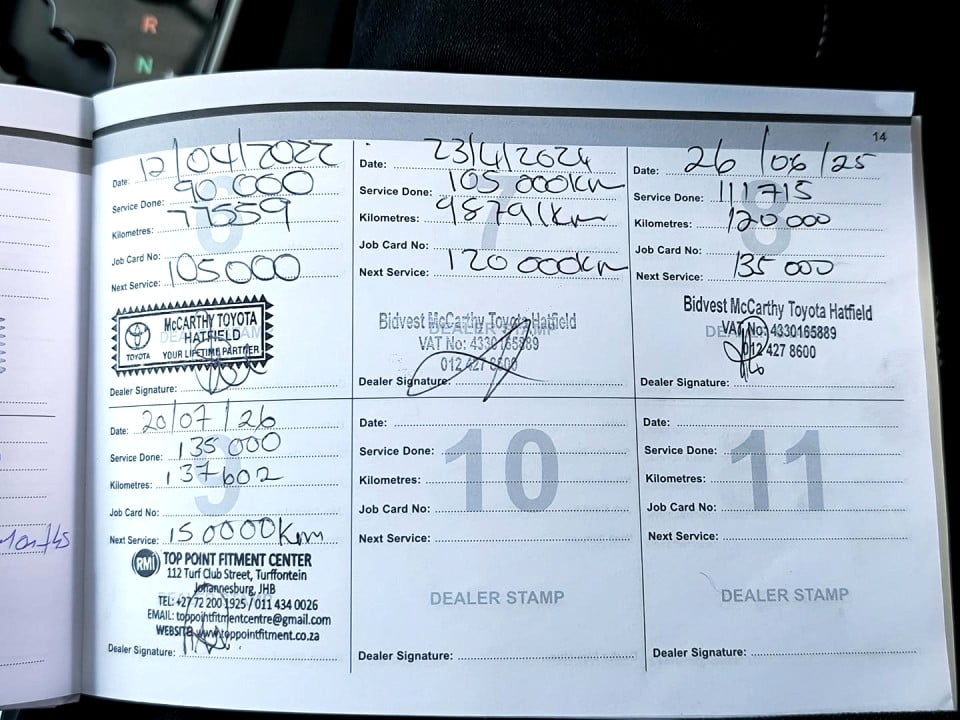 R
N
14
Date: 12/04/2022
Service Done: 90 000
Kilometres: 77559
Job Card No:
Next Service: 105000
McCARTHY TOYOTA
HATFIELD
TOYOTA YOUR LIFETIME PARTNER
Dealer Signature:
Date: 23/4/2024
Service Done: 105 000km
Kilometres: 98791km
Job Card No:
Next Service: 120 000km
7
DEALER STAMP
Bidvest McCarthy Toyota Hatfield
VAT No: 4330165889
012 427 8600
Dealer Signature:
Date: 26/06/25
Service Done: 111715
Kilometres: 120 000
Job Card No:
Next Service: 135 000
8
Bidvest McCarthy Toyota Hatfield
VAT No: 4330165889
012 427 8600
Dealer Signature:
Date: 20/07/26
Service Done: 135 000
Kilometres: 137602
Job Card No:
Next Service: 150000Km
9
RMI TOP POINT FITMENT CENTER
112 Turf Club Street, Turffontein
Johannesburg, JHB
TEL: +27 72 200 1925 / 011 434 0026
EMAIL: toppointfitmentcentre@gmail.com
WEBSITE www.toppointfitment.co.za
Dealer Signature:
Date:
Service Done:
Kilometres:
Job Card No:
Next Service:
10
DEALER STAMP
Dealer Signature:
Date:
Service Done:
Kilometres:
Job Card No:
Next Service:
11
DEALER STAMP
Dealer Signature: